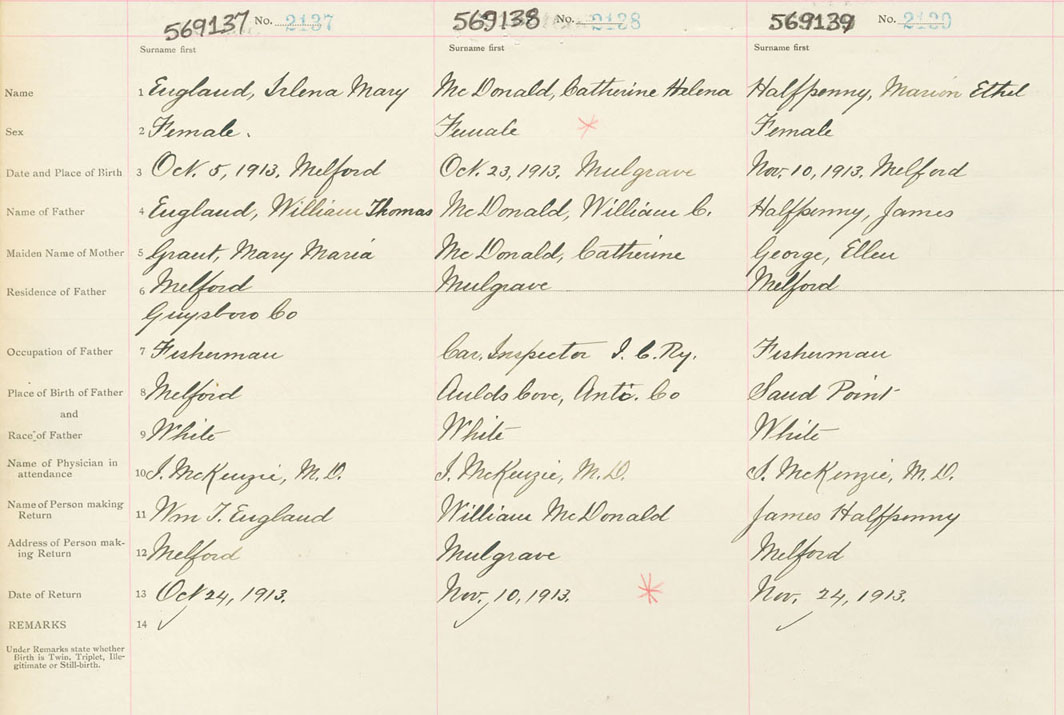 569137 No. 2137 569138 No. 2138 569139 No. 2139
Surname first Surname first Surname first
Name 1 England, Irlena Mary McDonald, Catherine Helena Halfpenny, Marion Ethel
Sex 2 Female. Female Female
Date and Place of Birth 3 Oct. 5, 1913. Melford Oct. 23, 1913. Mulgrave Nov. 10, 1913. Melford
Name of Father 4 England, William Thomas McDonald, William C. Halfpenny, James
Maiden Name of Mother 5 Grant, Mary Maria McDonald, Catherine George, Ellen
Residence of Father 6 Melford Mulgrave Melford
Guysboro Co
Occupation of Father 7 Fisherman Car. Inspector I. C. Ry. Fisherman
Place of Birth of Father 8 Melford Aulds Cove, Anti. Co Sand Point
and
Race of Father 9 White White White
Name of Physician in
attendance 10 J. McKenzie, M.D. J. McKenzie, M.D. J. McKenzie, M.D.
Name of Person making
Return 11 Wm T. England William McDonald James Halfpenny
Address of Person mak-
ing Return 12 Melford Mulgrave Melford
Date of Return 13 Oct 24, 1913. Nov. 10, 1913. Nov. 24, 1913.
REMARKS 14
Under Remarks state whether
Birth is Twin, Triplet, Ille-
gitimate or Still-birth.